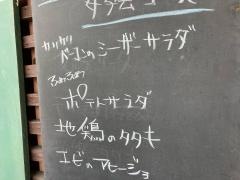 女子会コース
カリカリ
ベーコンのシーザーサラダ
ポテトサラダ
地鶏のタタキ
エビのアヒージョ